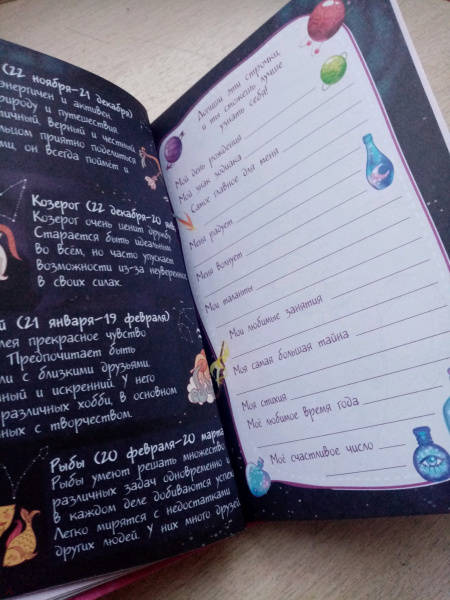 (22 ноября-21 декабря)
энергичен и активен.
природу и путешествия.
личный верный и честный
приятно поделиться
ми, он всегда поймёт и
Козерог (22 декабря-20
Козерог очень ценит дружбу.
Старается быть идеальным
во всём, но часто упускает
возможности из-за
в своих силах.
(21 января-19 февраля)
прекрасное чувство
Предпочитает быть
с близкими друзьями.
и искренний. У него
различных хобби, в основном
с творчеством.
Рыбы (20 февраля-20 марта)
Рыбы умеют решать множество
различных задач одновременно и
в каждом деле добиваются
Легко мирятся с недостатками
других людей. У них много друзей
Допиши эти строчки,
и ты сможешь лучше
узнать себя!
Мой день рождения
Мой знак зодиака
Самое главное для меня
Меня радует
Меня волнует
Мои таланты
Мои любимые занятия
Моя самая большая тайна
Моя стихия
Моё любимое время года
Моё счастливое число